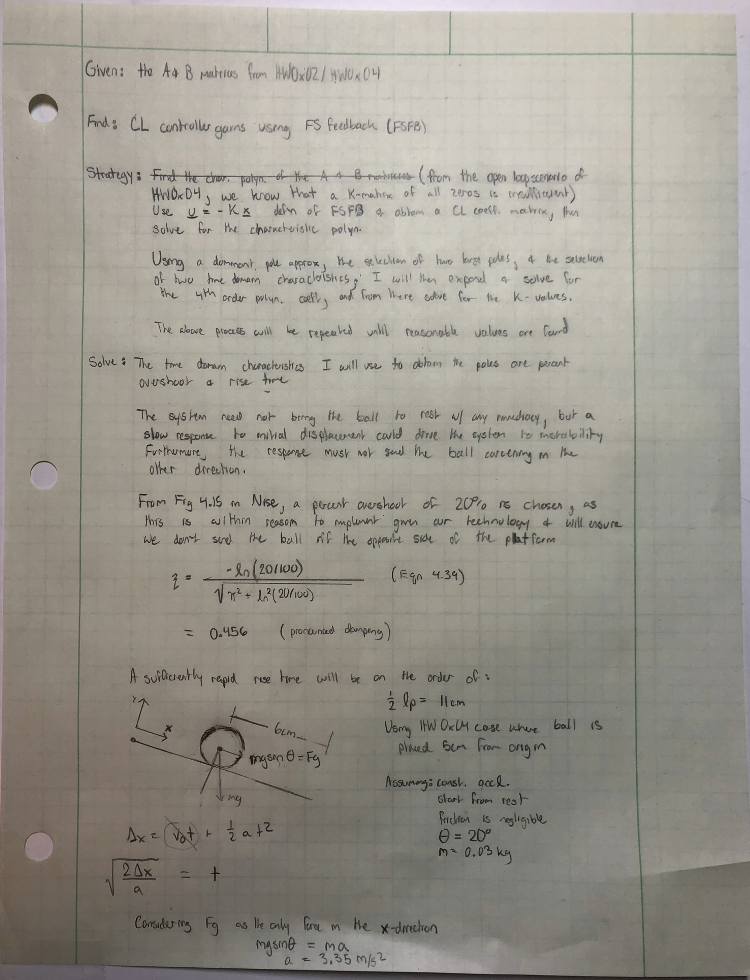 Given: the A & B matrices from HW0x02/HW0x04
Find: CL controller gains using FS feedback (FSFB)
Strategy: Find the char. polyn. of the A & B matrices (from the open loop scenario of
HW0x04, we know that a K-matrix of all zeros is insufficient)
Use u = -Kx defn of FSFB & obtain a CL coeff. matrix, then
solve for the characteristic polyn.
Using a dominant pole approx, the selection of two large poles, & the selection
of two time domain characteristics, I will then expand & solve for
the 4th order polyn. coeffs, and from there solve for the K-values.
The above process will be repeated until reasonable values are found
Solve: The time domain characteristics I will use to obtain the poles are percent
overshoot & rise time
The system need not bring the ball to rest w/ any immediacy, but a
slow response to initial displacement could drive the system to instability
Furthermore, the response must not send the ball careening in the
other direction.
From Fig 4.15 in Nise, a percent overshoot of 20% is chosen, as
this is within reason to implement given our technology & will ensure
we don't send the ball off the opposite side of the platform
ζ = -ln(20/100) / √π² + ln²(20/100) (Eqn 4.39)
= 0.456 (pronounced damping)
A sufficiently rapid rise time will be on the order of:
½ lp = 11cm
Using HW0x04 case where ball is
placed 5cm from origin
Y
x
6cm
mgsinθ = Fg
mg
Assuming: const. accl.
start from rest
friction is negligible
θ = 20°
m = 0.03 kg
Δx = v₀t + ½ at²
√2Δx/a = t
Considering Fg as the only force in the x-direction
mgsinθ = ma
a = 3.35 m/s²